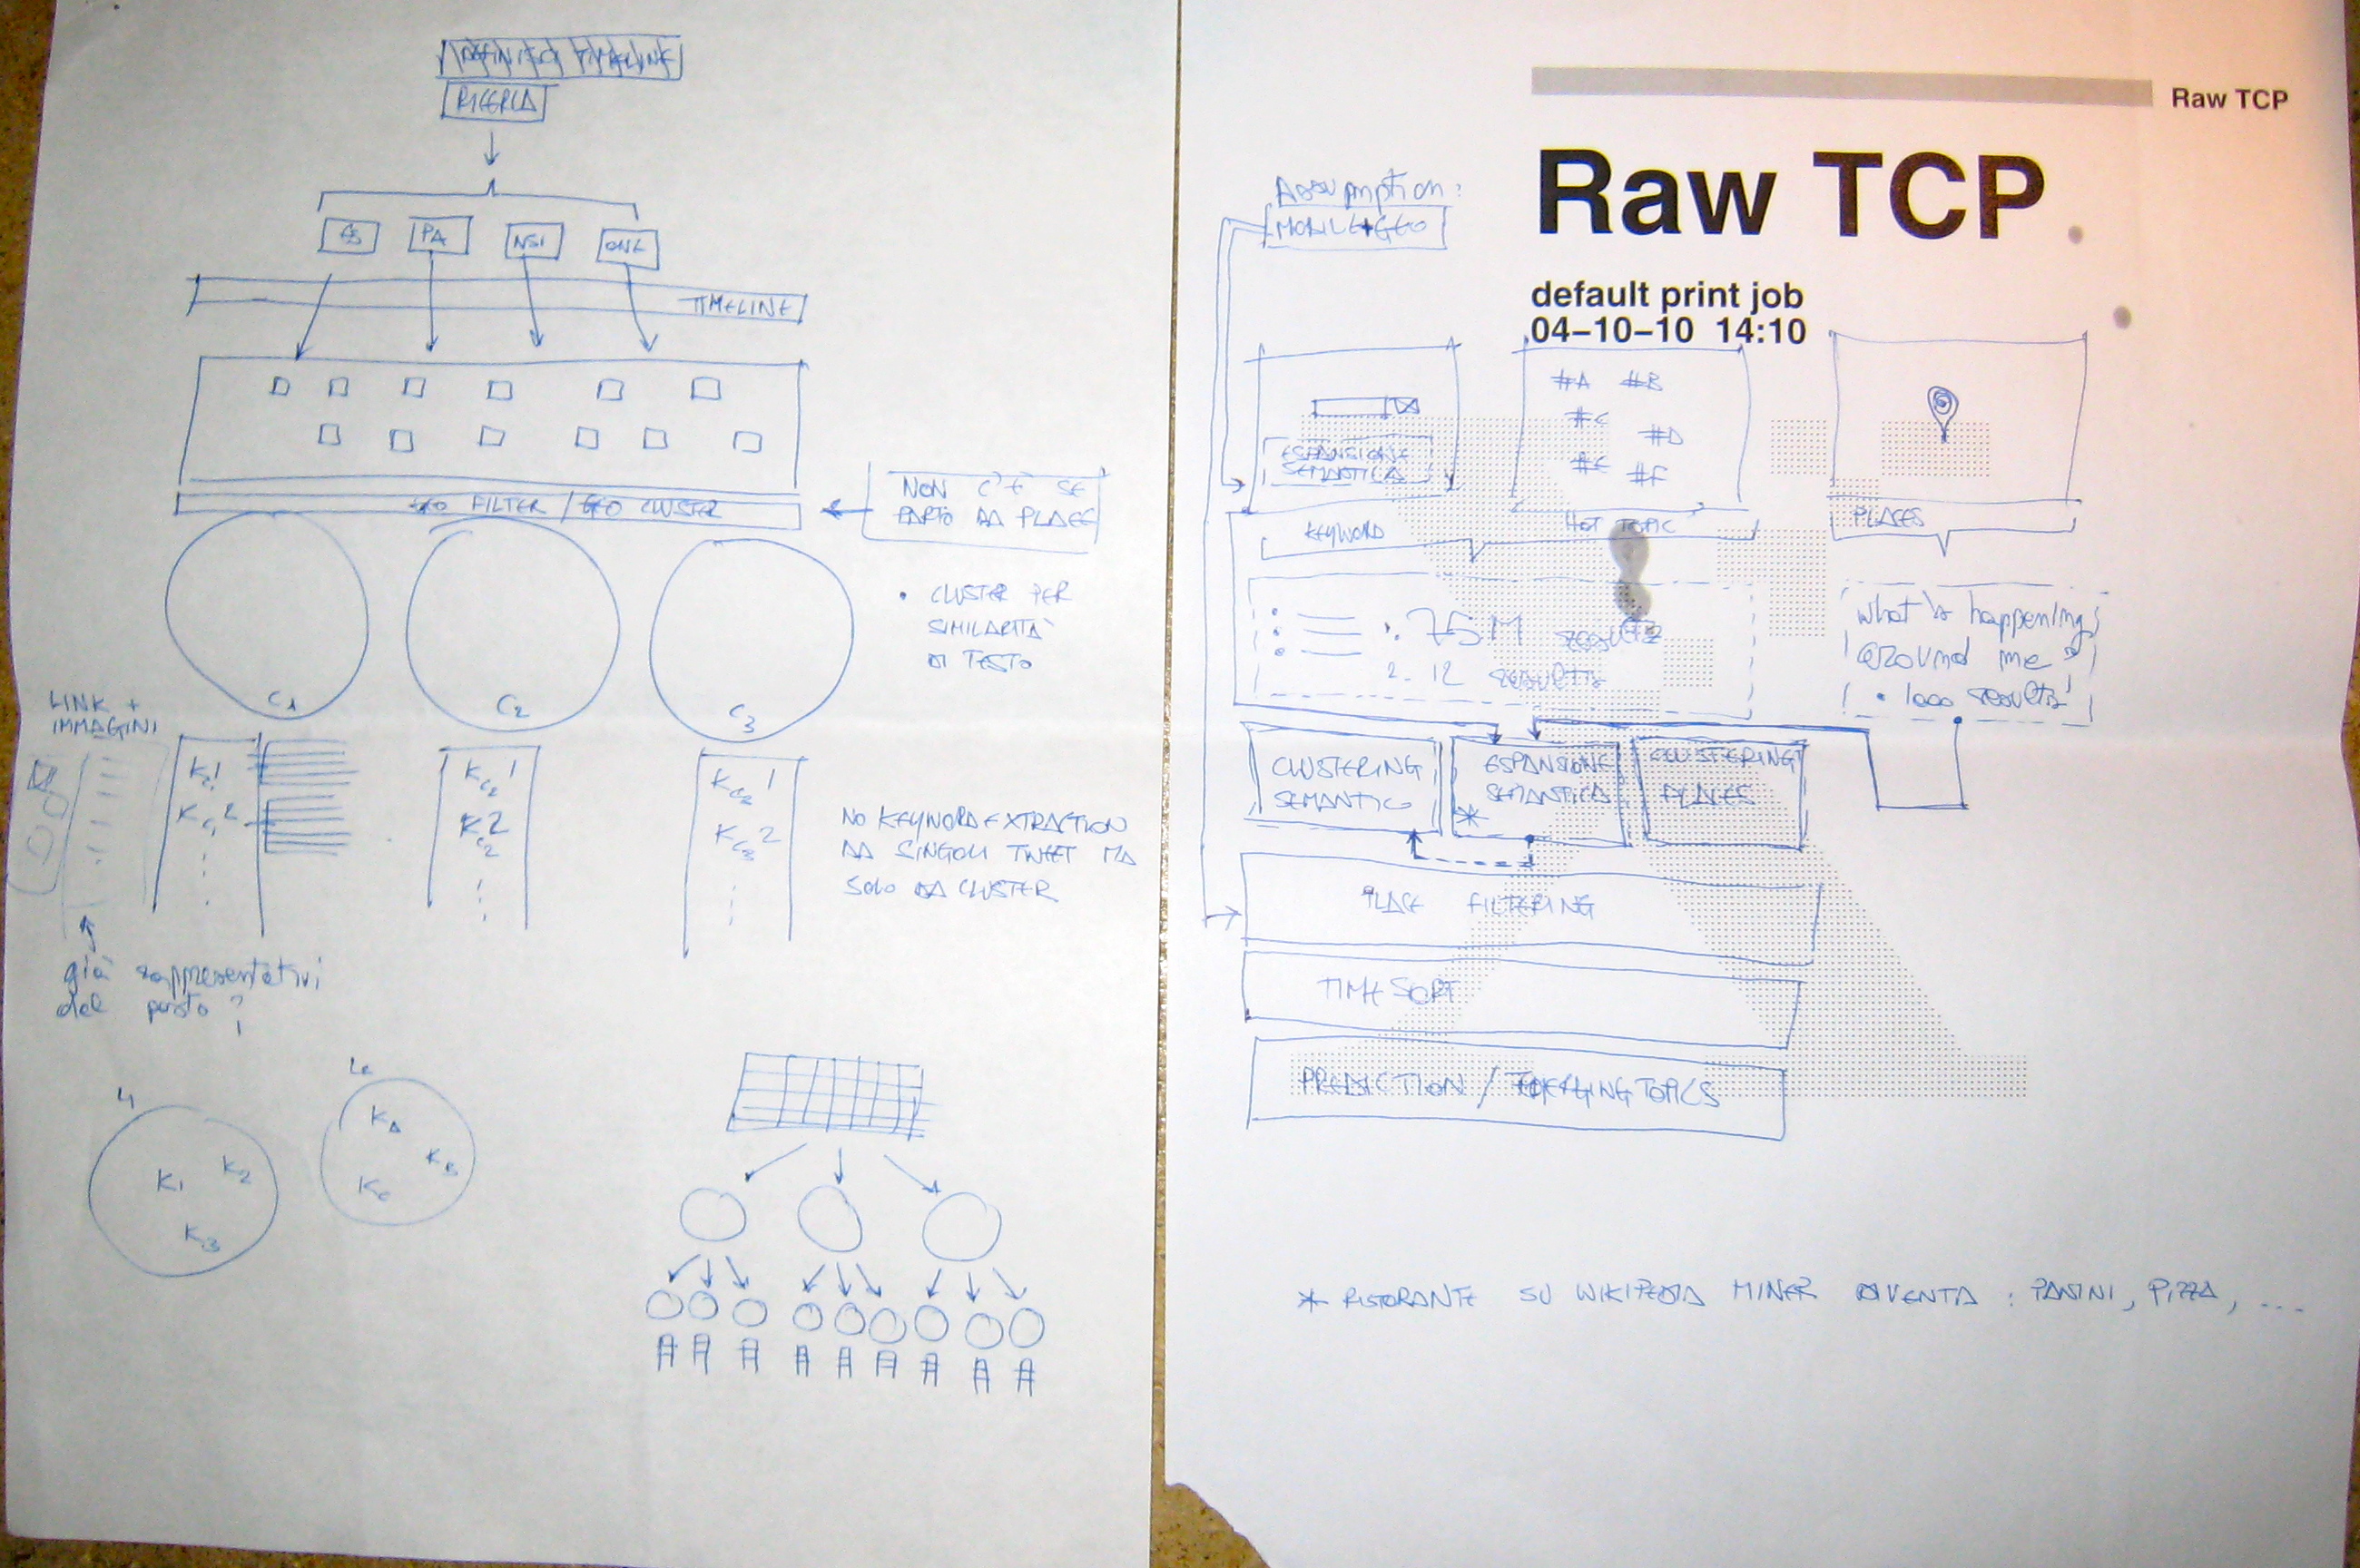 RICERCA
PA
NSI
ONE
TIMELINE
GEO FILTER / GEO CLUSTER
NON C'È SE
PARTO DA PLACE
C1
C2
C3
• CLUSTER PER
SIMILARITÀ
DI TESTO
LINK +
IMMAGINI
Kc1 1
Kc1 2
Kc2 1
Kc2 2
Kc3 2
NO KEYWORD EXTRACTION
DA SINGOLI TWEET MA
SOLO DA CLUSTER
già rappresentativi
del posto?
K1
K2
K3
KA
KB
KC
Raw TCP
Raw TCP
default print job
04-10-10 14:10
Assumption:
MOBILE+GEO
ESPANSIONE
SEMANTICA
#A #B
#C
#D
#E
#F
KEYWORD
HOT TOPIC
PLACES
75M
2. 12
what's happening
around me?
• 1000 results
CLUSTERING
SEMANTICO
ESPANSIONE
SEMANTICA
*
CLUSTERING
PLACES
PLACE FILTERING
TIME SORT
PREDICTION / EMERGING TOPICS
* RISTORANTE SU WIKIPEDIA MINER DIVENTA : PANINI, PIZZA, ...